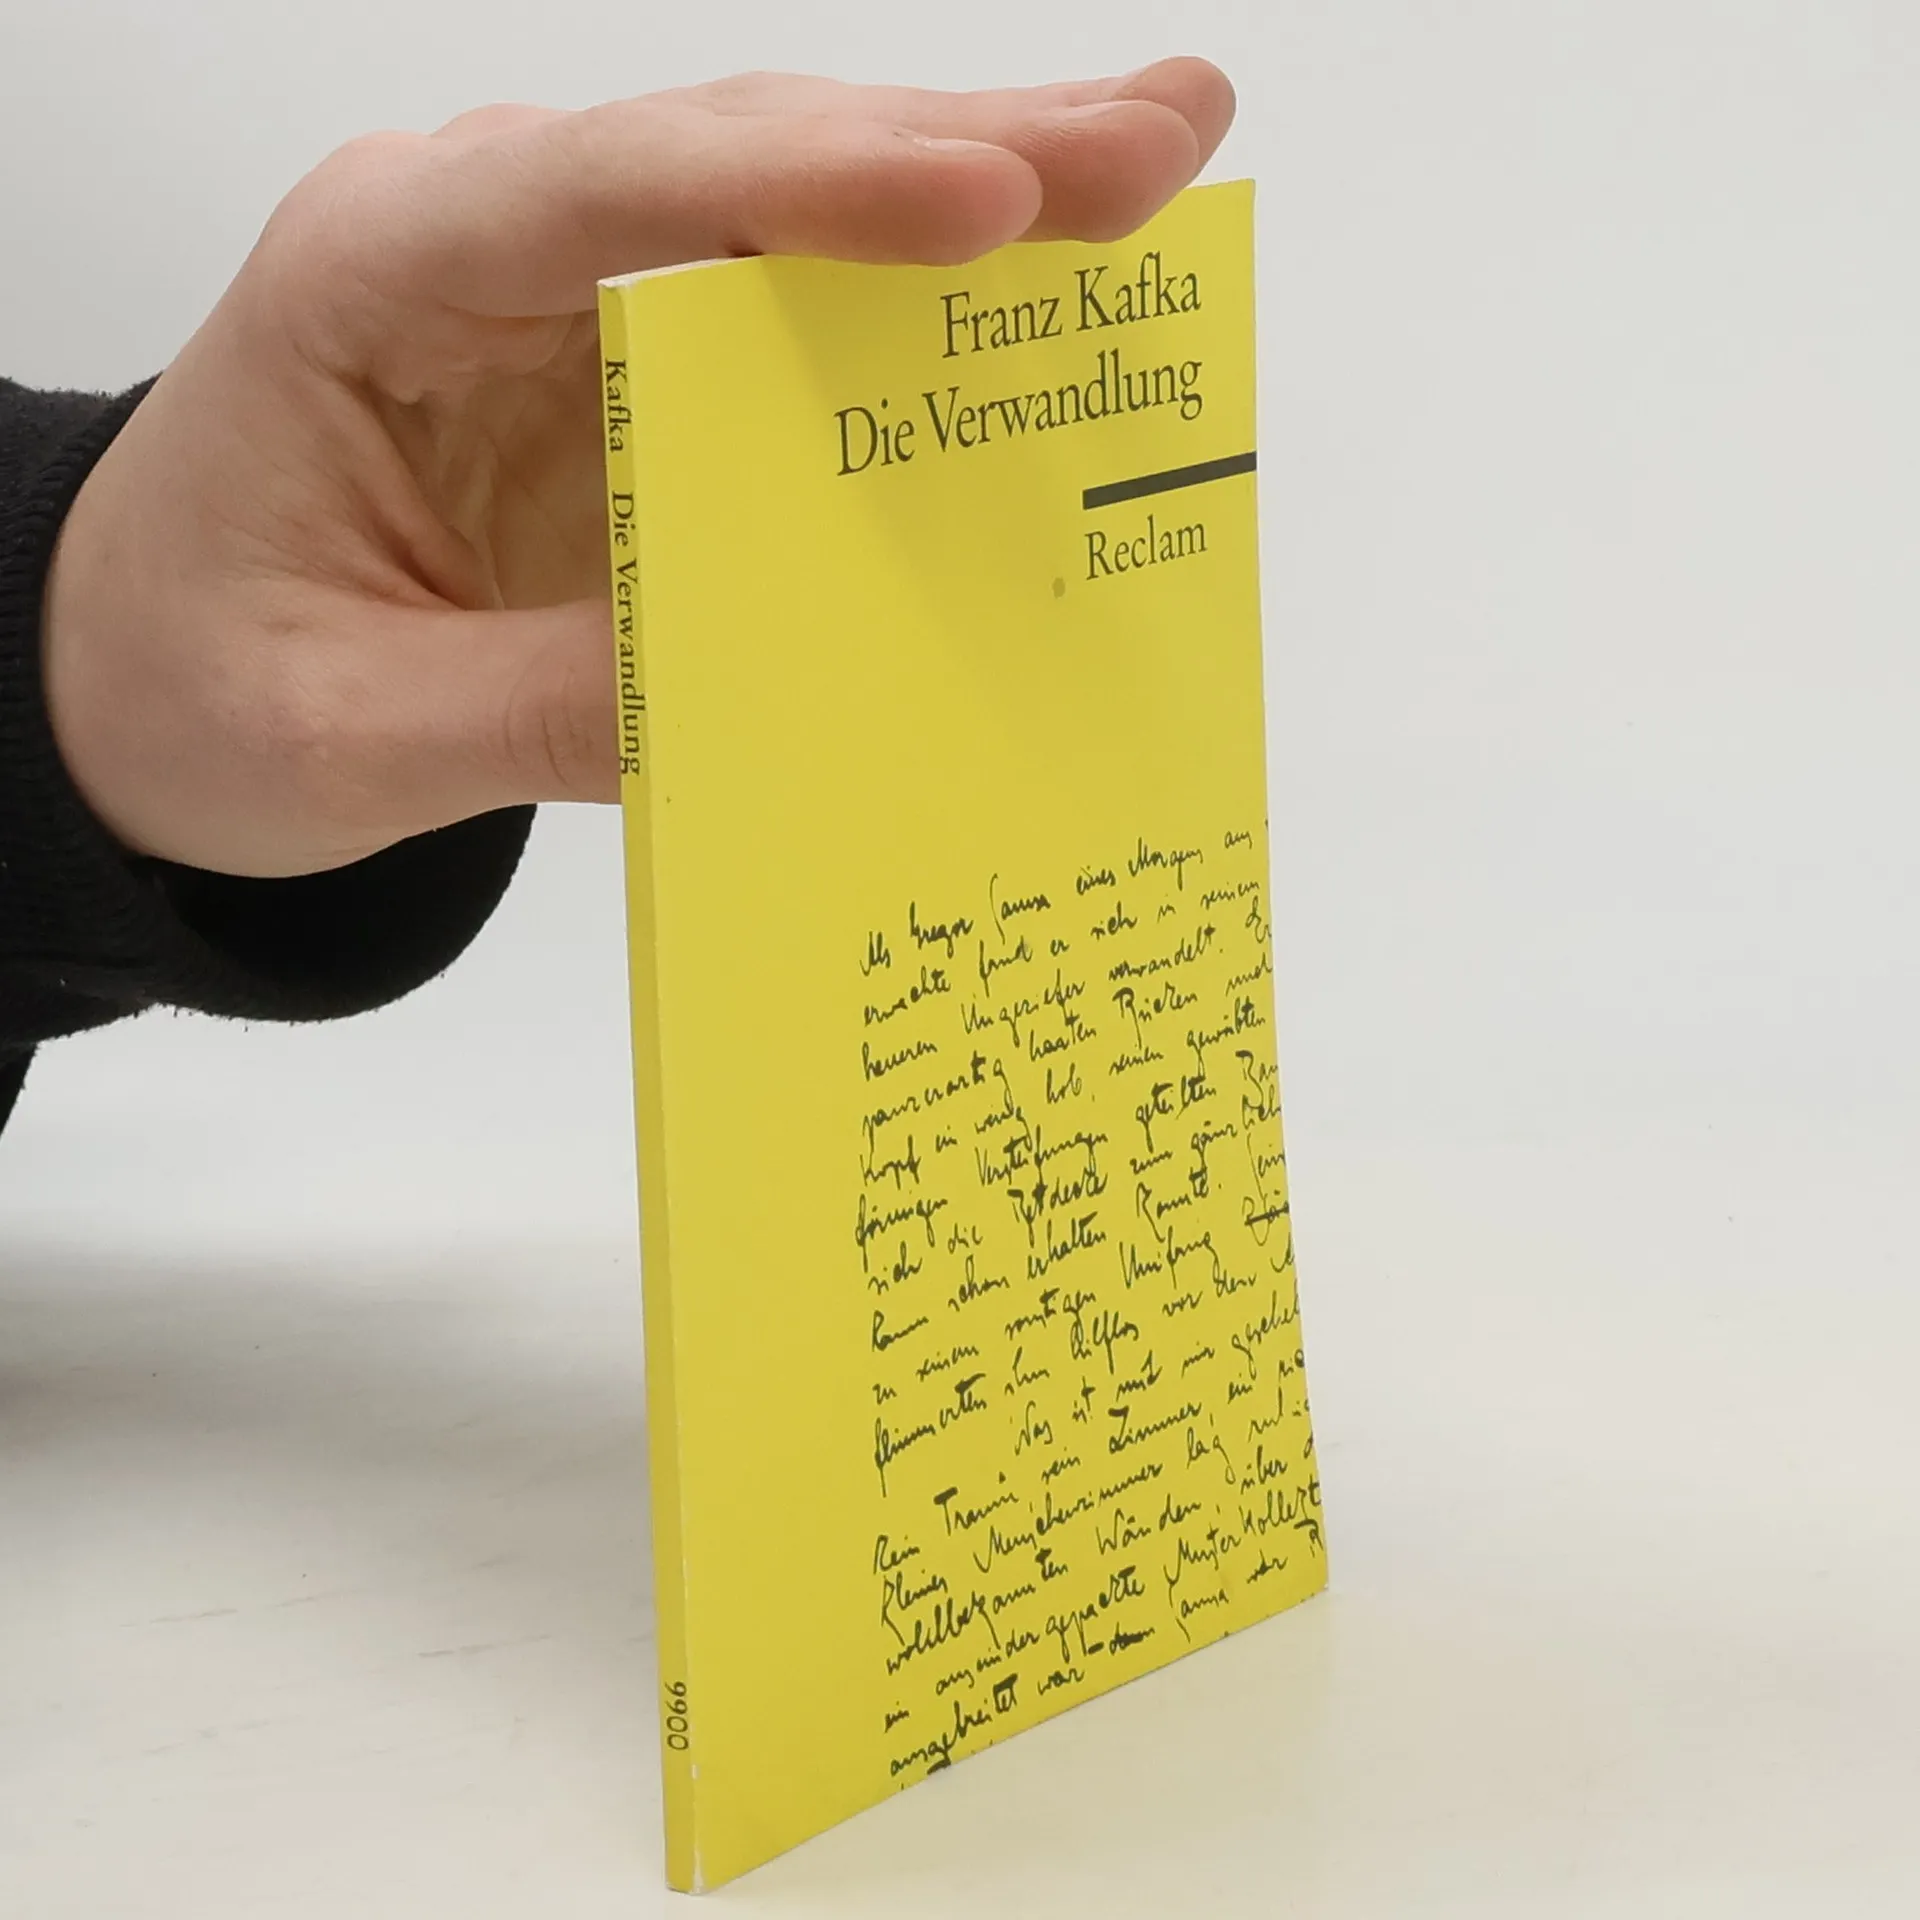 Franz Kafka
Die Verwandlung
Reclam
Kafka Die Verwandlung
9900
Als Gregor Samsa eines Morgens aus
erwachte fand er sich in seinem
heueren Ungeziefer verwandelt. Er
panzerartig harten Rücken und
Kopf ein wenig hob, seinen gewölbten
förmigen Versteifungen geteilten Bau
sich die Bettdecke zum gänzlich
kaum schon erhalten konnte. Sein
zu seinem sonstigen Umfang
flimmerten ihm hilflos vor den A
Was ist mit mir gescheh
kein Traum, sein Zimmer, ein ric
kleines Menschenzimmer lag ruhig
wohlbekannten Wänden, über d
ein auseinander gepackte Musterkollekt
ausgebreitet war Samsa war R